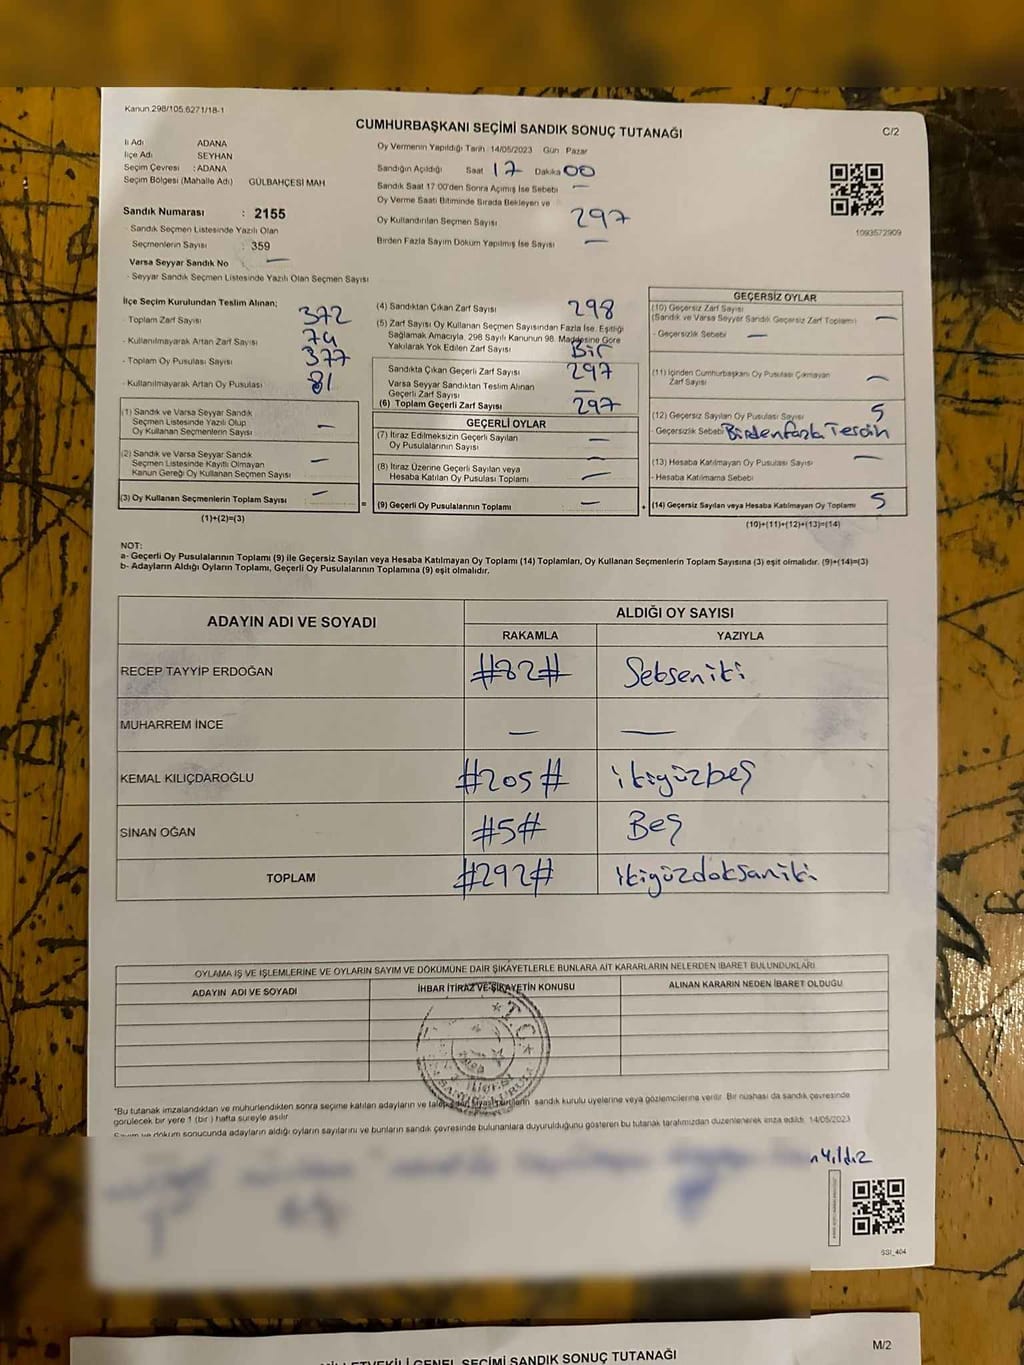 Kanun 298/105.6271/18-1
CUMHURBAŞKANI SEÇİMİ SANDIK SONUÇ TUTANAĞI
C/2
İl Adı ADANA
İlçe Adı SEYHAN
Seçim Çevresi : ADANA
Seçim Bölgesi (Mahalle Adı) GÜLBAHÇESİ MAH
Sandık Numarası : 2155
- Sandık Seçmen Listesinde Yazılı Olan
Seçmenlerin Sayısı : 359
Varsa Seyyar Sandık No : —
- Seyyar Sandık Seçmen Listesinde Yazılı Olan Seçmen Sayısı
Oy Vermenin Yapıldığı Tarih : 14/05/2023 Gün Pazar
Sandığın Açıldığı Saat 17 Dakika 00
Sandık Saat 17.00'den Sonra Açımış İse Sebebi —
Oy Verme Saati Bitiminde Sırada Bekleyen ve
Oy Kullandırılan Seçmen Sayısı 297
Birden Fazla Sayım Döküm Yapılmış İse Sayısı —
1093572909
İlçe Seçim Kurulundan Teslim Alınan;
- Toplam Zarf Sayısı 372
- Kullanılmayarak Artan Zarf Sayısı 74
- Toplam Oy Pusulası Sayısı 377
- Kullanılmayarak Artan Oy Pusulası 81
(1) Sandık ve Varsa Seyyar Sandık
Seçmen Listesinde Yazılı Olup
Oy Kullanan Seçmenlerin Sayısı —
(2) Sandık ve Varsa Seyyar Sandık
Seçmen Listesinde Kayıtlı Olmayan
Kanun Gereği Oy Kullanan Seçmen Sayısı —
(3) Oy Kullanan Seçmenlerin Toplam Sayısı —
(1)+(2)=(3)
(4) Sandıktan Çıkan Zarf Sayısı 298
(5) Zarf Sayısı Oy Kullanan Seçmen Sayısından Fazla İse, Eşitliği
Sağlamak Amacıyla, 298 Sayılı Kanunun 98. Maddesine Göre
Yakılarak Yok Edilen Zarf Sayısı Bir
Sandıkta Çıkan Geçerli Zarf Sayısı 297
Varsa Seyyar Sandıktan Teslim Alınan
Geçerli Zarf Sayısı —
(6) Toplam Geçerli Zarf Sayısı 297
GEÇERLİ OYLAR
(7) İtiraz Edilmeksizin Geçerli Sayılan
Oy Pusulalarının Sayısı —
(8) İtiraz Üzerine Geçerli Sayılan veya
Hesaba Katılan Oy Pusulası Toplamı —
(9) Geçerli Oy Pusulalarının Toplamı —
GEÇERSİZ OYLAR
(10) Geçersiz Zarf Sayısı
(Sandık ve Varsa Seyyar Sandık Geçersiz Zarf Toplamı) —
- Geçersizlik Sebebi —
(11) İçinden Cumhurbaşkanı Oy Pusulası Çıkmayan
Zarf Sayısı —
(12) Geçersiz Sayılan Oy Pusulası Sayısı 5
- Geçersizlik Sebebi Birden fazla Tercih
(13) Hesaba Katılmayan Oy Pusulası Sayısı —
- Hesaba Katılmama Sebebi
(14) Geçersiz Sayılan veya Hesaba Katılmayan Oy Toplamı 5
(10)+(11)+(12)+(13)=(14)
NOT:
a- Geçerli Oy Pusulalarının Toplamı (9) ile Geçersiz Sayılan veya Hesaba Katılmayan Oy Toplamı (14) Toplamları, Oy Kullanan Seçmenlerin Toplam Sayısına (3) eşit olmalıdır. (9)+(14)=(3)
b- Adayların Aldığı Oyların Toplamı, Geçerli Oy Pusulalarının Toplamına (9) eşit olmalıdır.
ADAYIN ADI VE SOYADI ALDIĞI OY SAYISI
RAKAMLA YAZIYLA
RECEP TAYYİP ERDOĞAN #82# Sekseniki
MUHARREM İNCE — —
KEMAL KILIÇDAROĞLU #205# ikiyüzbeş
SİNAN OĞAN #5# Beş
TOPLAM #292# ikiyüzdoksaniki
OYLAMA İŞ VE İŞLEMLERİNE VE OYLARIN SAYIM VE DÖKÜMÜNE DAİR ŞİKAYETLERLE BUNLARA AİT KARARLARIN NELERDEN İBARET BULUNDUKLARI
ADAYIN ADI VE SOYADI İHBAR İTİRAZ VE ŞİKAYETİN KONUSU ALINAN KARARIN NEDEN İBARET OLDUĞU
T.C.
*Bu tutanak imzalandıktan ve mühürlendikten sonra seçime katılan adayların ve talep eden siyasi partilerin sandık kurulu üyelerine veya gözlemcilerine verilir. Bir nüshası da sandık çevresinde
görülecek bir yere 1 (bir) hafta süreyle asılır.
Sayım ve döküm sonucunda adayların aldığı oyların sayılarını ve bunların sandık çevresinde bulunanlara duyurulduğunu gösteren bu tutanak tarafımızdan düzenlenerek imza edildi. 14/05/2023
Yıldız
SSI_404
MİLLETVEKİLİ GENEL SEÇİMİ SANDIK SONUÇ TUTANAĞI
M/2